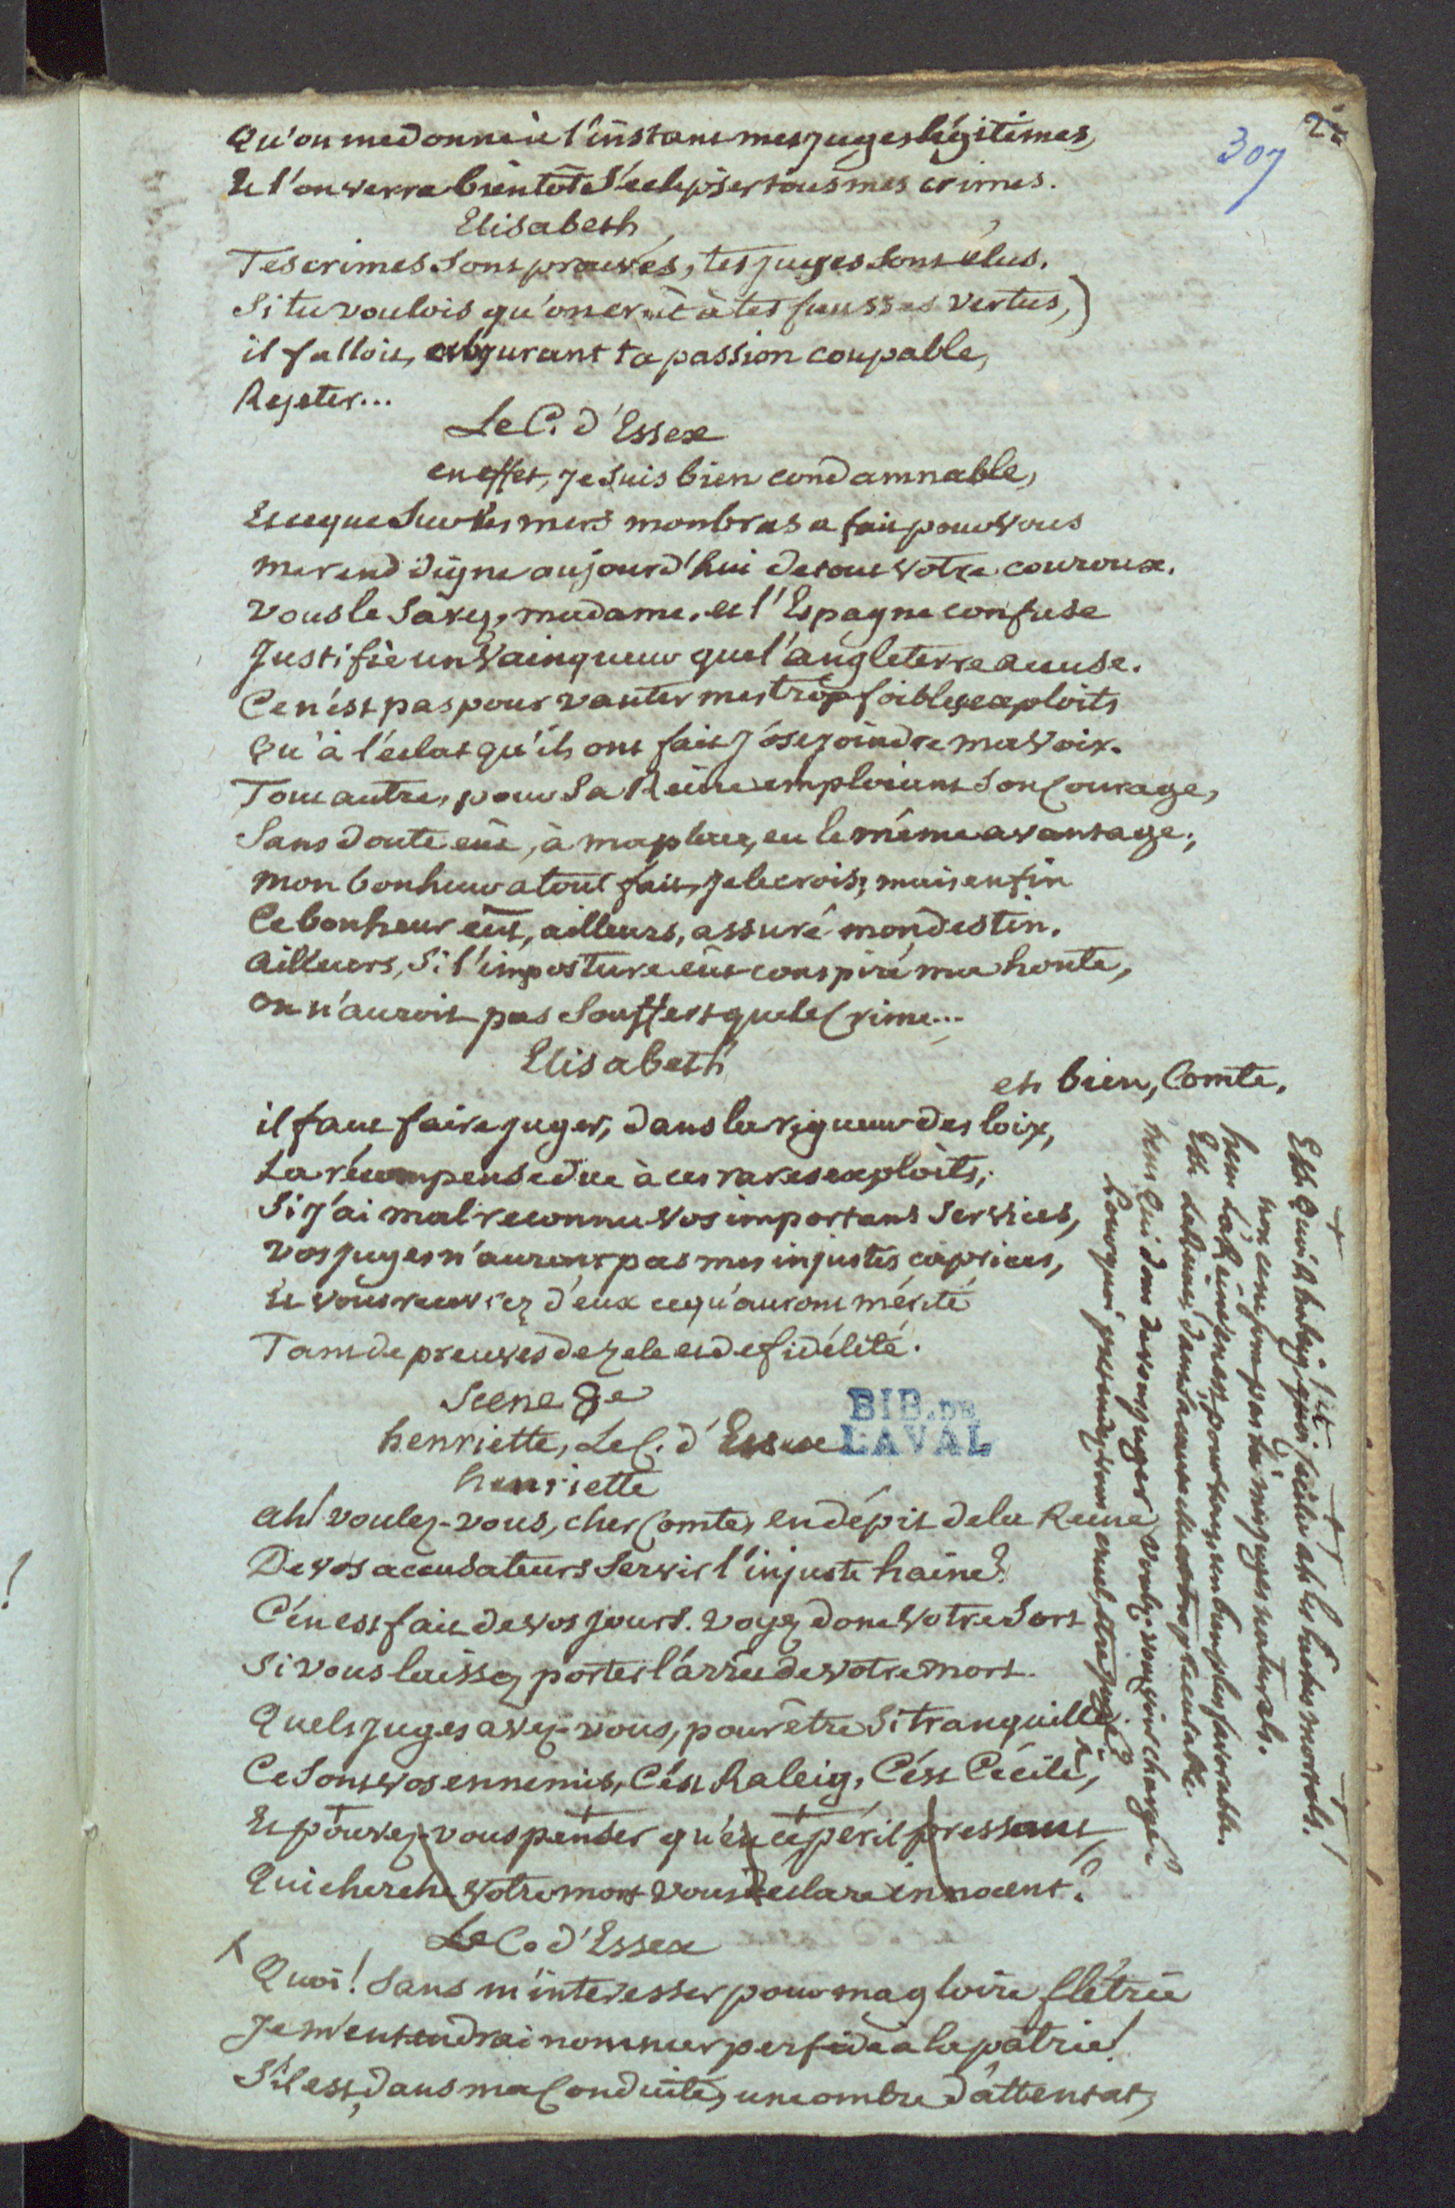 22
307
Qu'on me donne à l'instant mes juges légitimes,
Et l'on verra bientôt s'éclipser tous mes crimes.
Elisabeth
Tes crimes sont prouvés, tes juges sont élus.
Si tu voulois qu'on crût à tes fausses vertus,)
il falloit, abjurant ta passion coupable,
Rejeter...
Le C. d'Essex
en effet, je suis bien condamnable,
Et ce que sur les mers mon bras a fait pour vous
me rend digne aujourd'hui de tout votre couroux.
vous le savez, madame, et l'Espagne confuse
Justifie un vainqueur que l'angleterre accuse.
Ce n'est pas pour vanter mes trop foibles exploits
Qu'à l'éclat qu'ils ont fait j'ose joindre ma voix.
Tout autre, pour sa Reine emploiant son Courage,
Sans doute eût, à ma place, eu le même avantage;
mon bonheur a tout fait, je le crois; mais enfin
Ce bonheur eût, ailleurs, assuré mon destin.
ailleurs, si l'imposture eût conspiré ma honte,
on n'auroit pas souffert que le Crime...
Elisabeth
eh bien, Comte.
il faut faire juger, dans la rigueur des loix,
La récompense due à ces rares exploits;
Si j'ai mal reconnu vos importans services,
vos juges n'auront pas mes injustes caprices,
Et vous recevrez d'eux ce qu'auront mérité
Tant de preuves de zele et de fidélité.
Scene 8e
henriette, Le C. d'Essex
BIB. DE LAVAL
henriette
ah! voulez-vous, cher Comte, en dépit de la Reine
De vos accusateurs servir l'injuste haine?
C'en est fait de vos jours. voyez donc votre sort
Si vous laissez porter l'arrêt de votre mort.
Quels juges avez-vous, pour être si tranquille?
Ce sont vos ennemis, C'est Raleig, C'est Cécile,
Et pouvez-vous penser qu'en ce péril pressant
Qui cherche votre mort vous déclare innocent?
Le C. d'Essex
Quoi! sans m'interesser pour ma gloire flétrie
Je m'entendrai nommer perfide à la patrie!
S'il est, dans ma Conduite, une ombre d'attentat,
non ce ne sont pas là mes juges naturels.
pour vous, un plus favorable.
qui donc doit vous juger voulez-vous
Pourquoi cruel, être jugé?